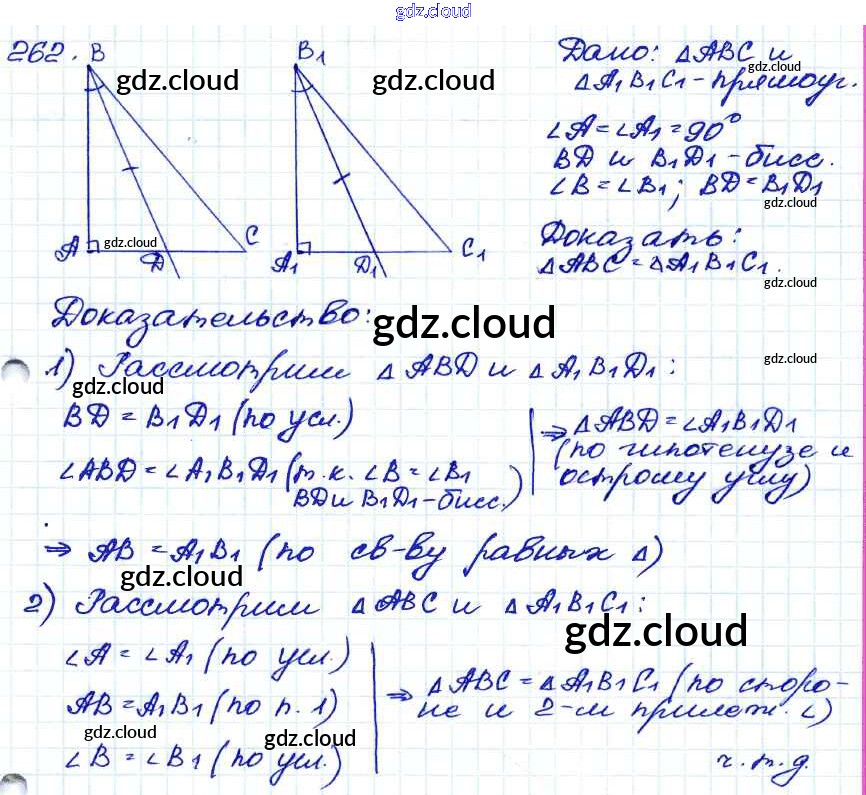 gdz.cloud
262.
B
B1
gdz.cloud
gdz.cloud
A
gdz.cloud
D
C
A1
D1
C1
Дано: ΔABC и
gdz.cloud
ΔA1B1C1-прямоуг.
∠A=∠A1=90°
BD и B1D1-бисс.
∠B=∠B1; BD=B1D1
gdz.cloud
Доказать:
ΔABC=ΔA1B1C1.
gdz.cloud
Доказательство:
gdz.cloud
1) Рассмотрим ΔABD и ΔA1B1D1:
gdz.cloud
gdz.cloud
BD=B1D1 (по усл.)
∠ABD=∠A1B1D1 (т.к. ∠B=∠B1
BD и B1D1-бисс.)
⇒ ΔABD=∠A1B1D1
(по гипотенузе и
острому углу)
gdz.cloud
⇒ AB=A1B1 (по св-ву равных Δ)
gdz.cloud
2) Рассмотрим ΔABC и ΔA1B1C1:
gdz.cloud
∠A=∠A1 (по усл.)
AB=A1B1 (по п. 1)
gdz.cloud
∠B=∠B1 (по усл.)
⇒ ΔABC=ΔA1B1C1 (по сторо-
не и 2-м прилеж. ∠)
ч.т.д.